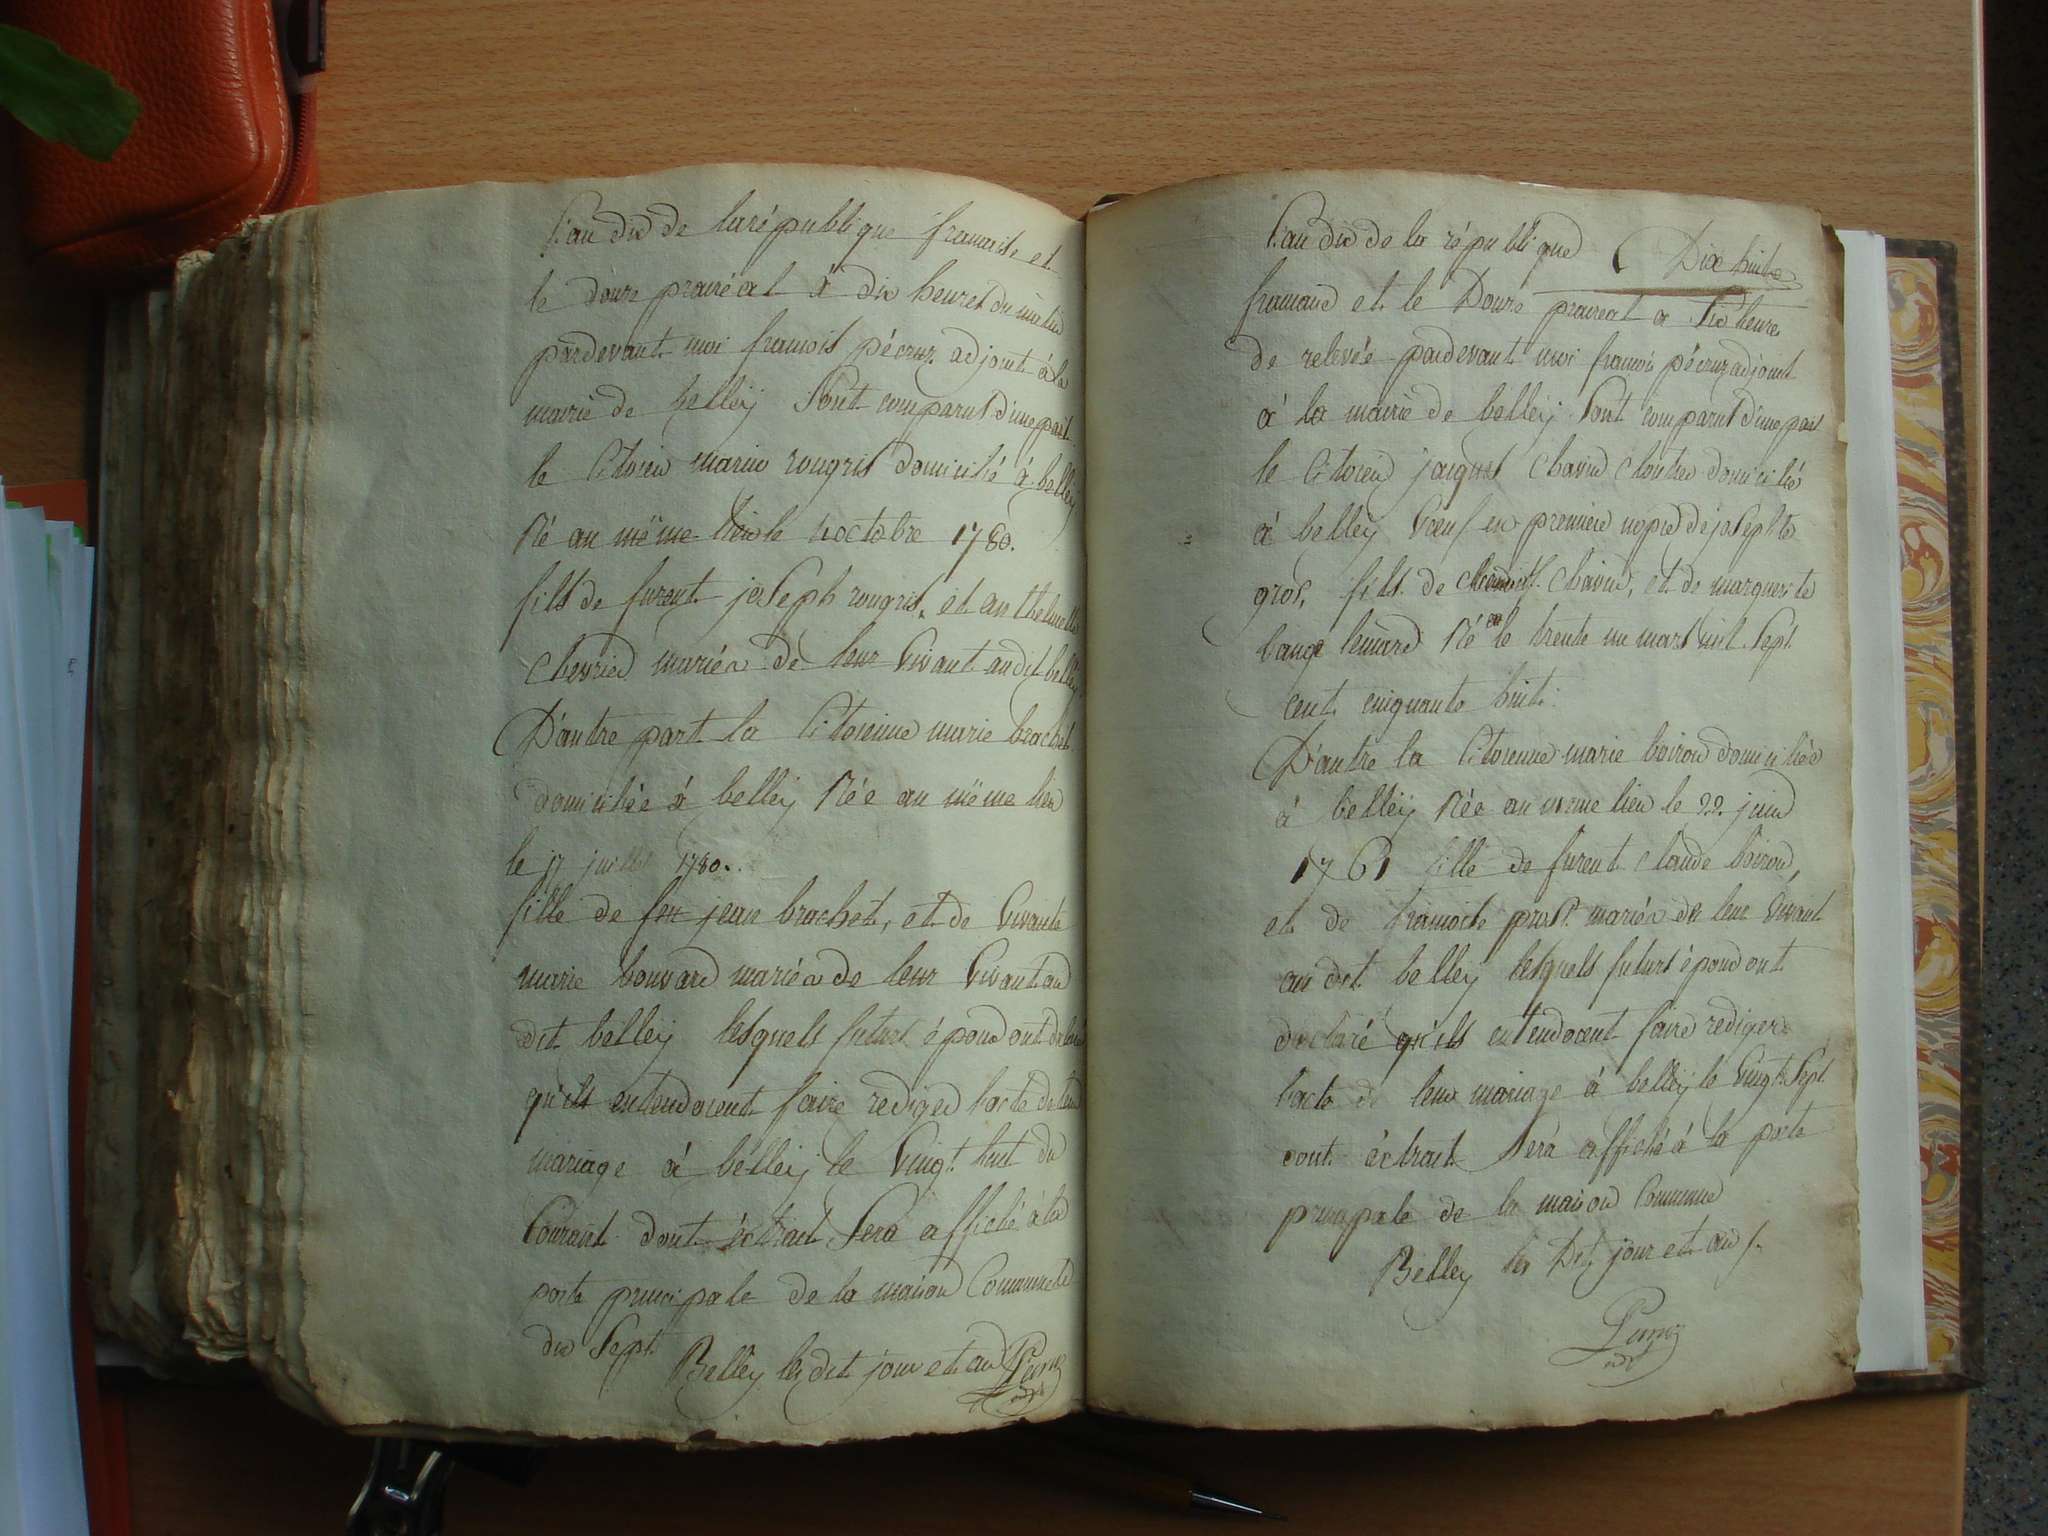 l'an dix de la république francaise et
le douze prairéal à dix heures du matin
pardevant moi francois pécruz adjoint à la
mairie de belleÿ Sont comparus d'une part
le Citoien marin rougris domicilié à belleÿ
Né au même lieu le octobre 1780.
fils de furent joseph rougris, et anthelmette
chevrier mariés de leur Vivant audit belleÿ
D'autre part la Citoienne marie brachet
domiciliée à belleÿ Née au même lieu
le 17 juillet 1780.
fille de feu jean brachet, et de Vivante
marie bouvard mariés de leur Vivant au
dit belleÿ lesquels futurs époux ont déclaré
qu'ils entendoient faire rediger l'acte de leur
mariage à belleÿ le Vingt huit du
Courant dont éxtrait Sera affiché à la
porte principale de la maison Commune
dix Sept
Belleÿ les dit jour et an
l'an dix de la république
Dix huite
francaise et le Douze prairéal a Six heure
de relevée pardevant moi francois pécruz adjoint
à la mairie de belleÿ Sont comparus d'une part
le Citoien jacques Chavin domicilié
à belleÿ Veuf en premiere nopce de josephte
gros, fils de Chavin, et de marguerite
Né le trente un mars mil Sept
cent cinquante huit.
D'autre la Citoienne marie boiron domiciliée
à belleÿ Née au meme lieu le 22 juin
1761 fille de furent Claude boiron,
et de francoise pross mariés de leur Vivant
au dit belleÿ lesquels futurs époux ont
declaré qu'ils entendoient faire rediger
l'acte de leur mariage à belleÿ le Vingt Sept
dont éxtrait Sera affiché à la porte
principale de la maison Commune
Belleÿ les Dit jour et an